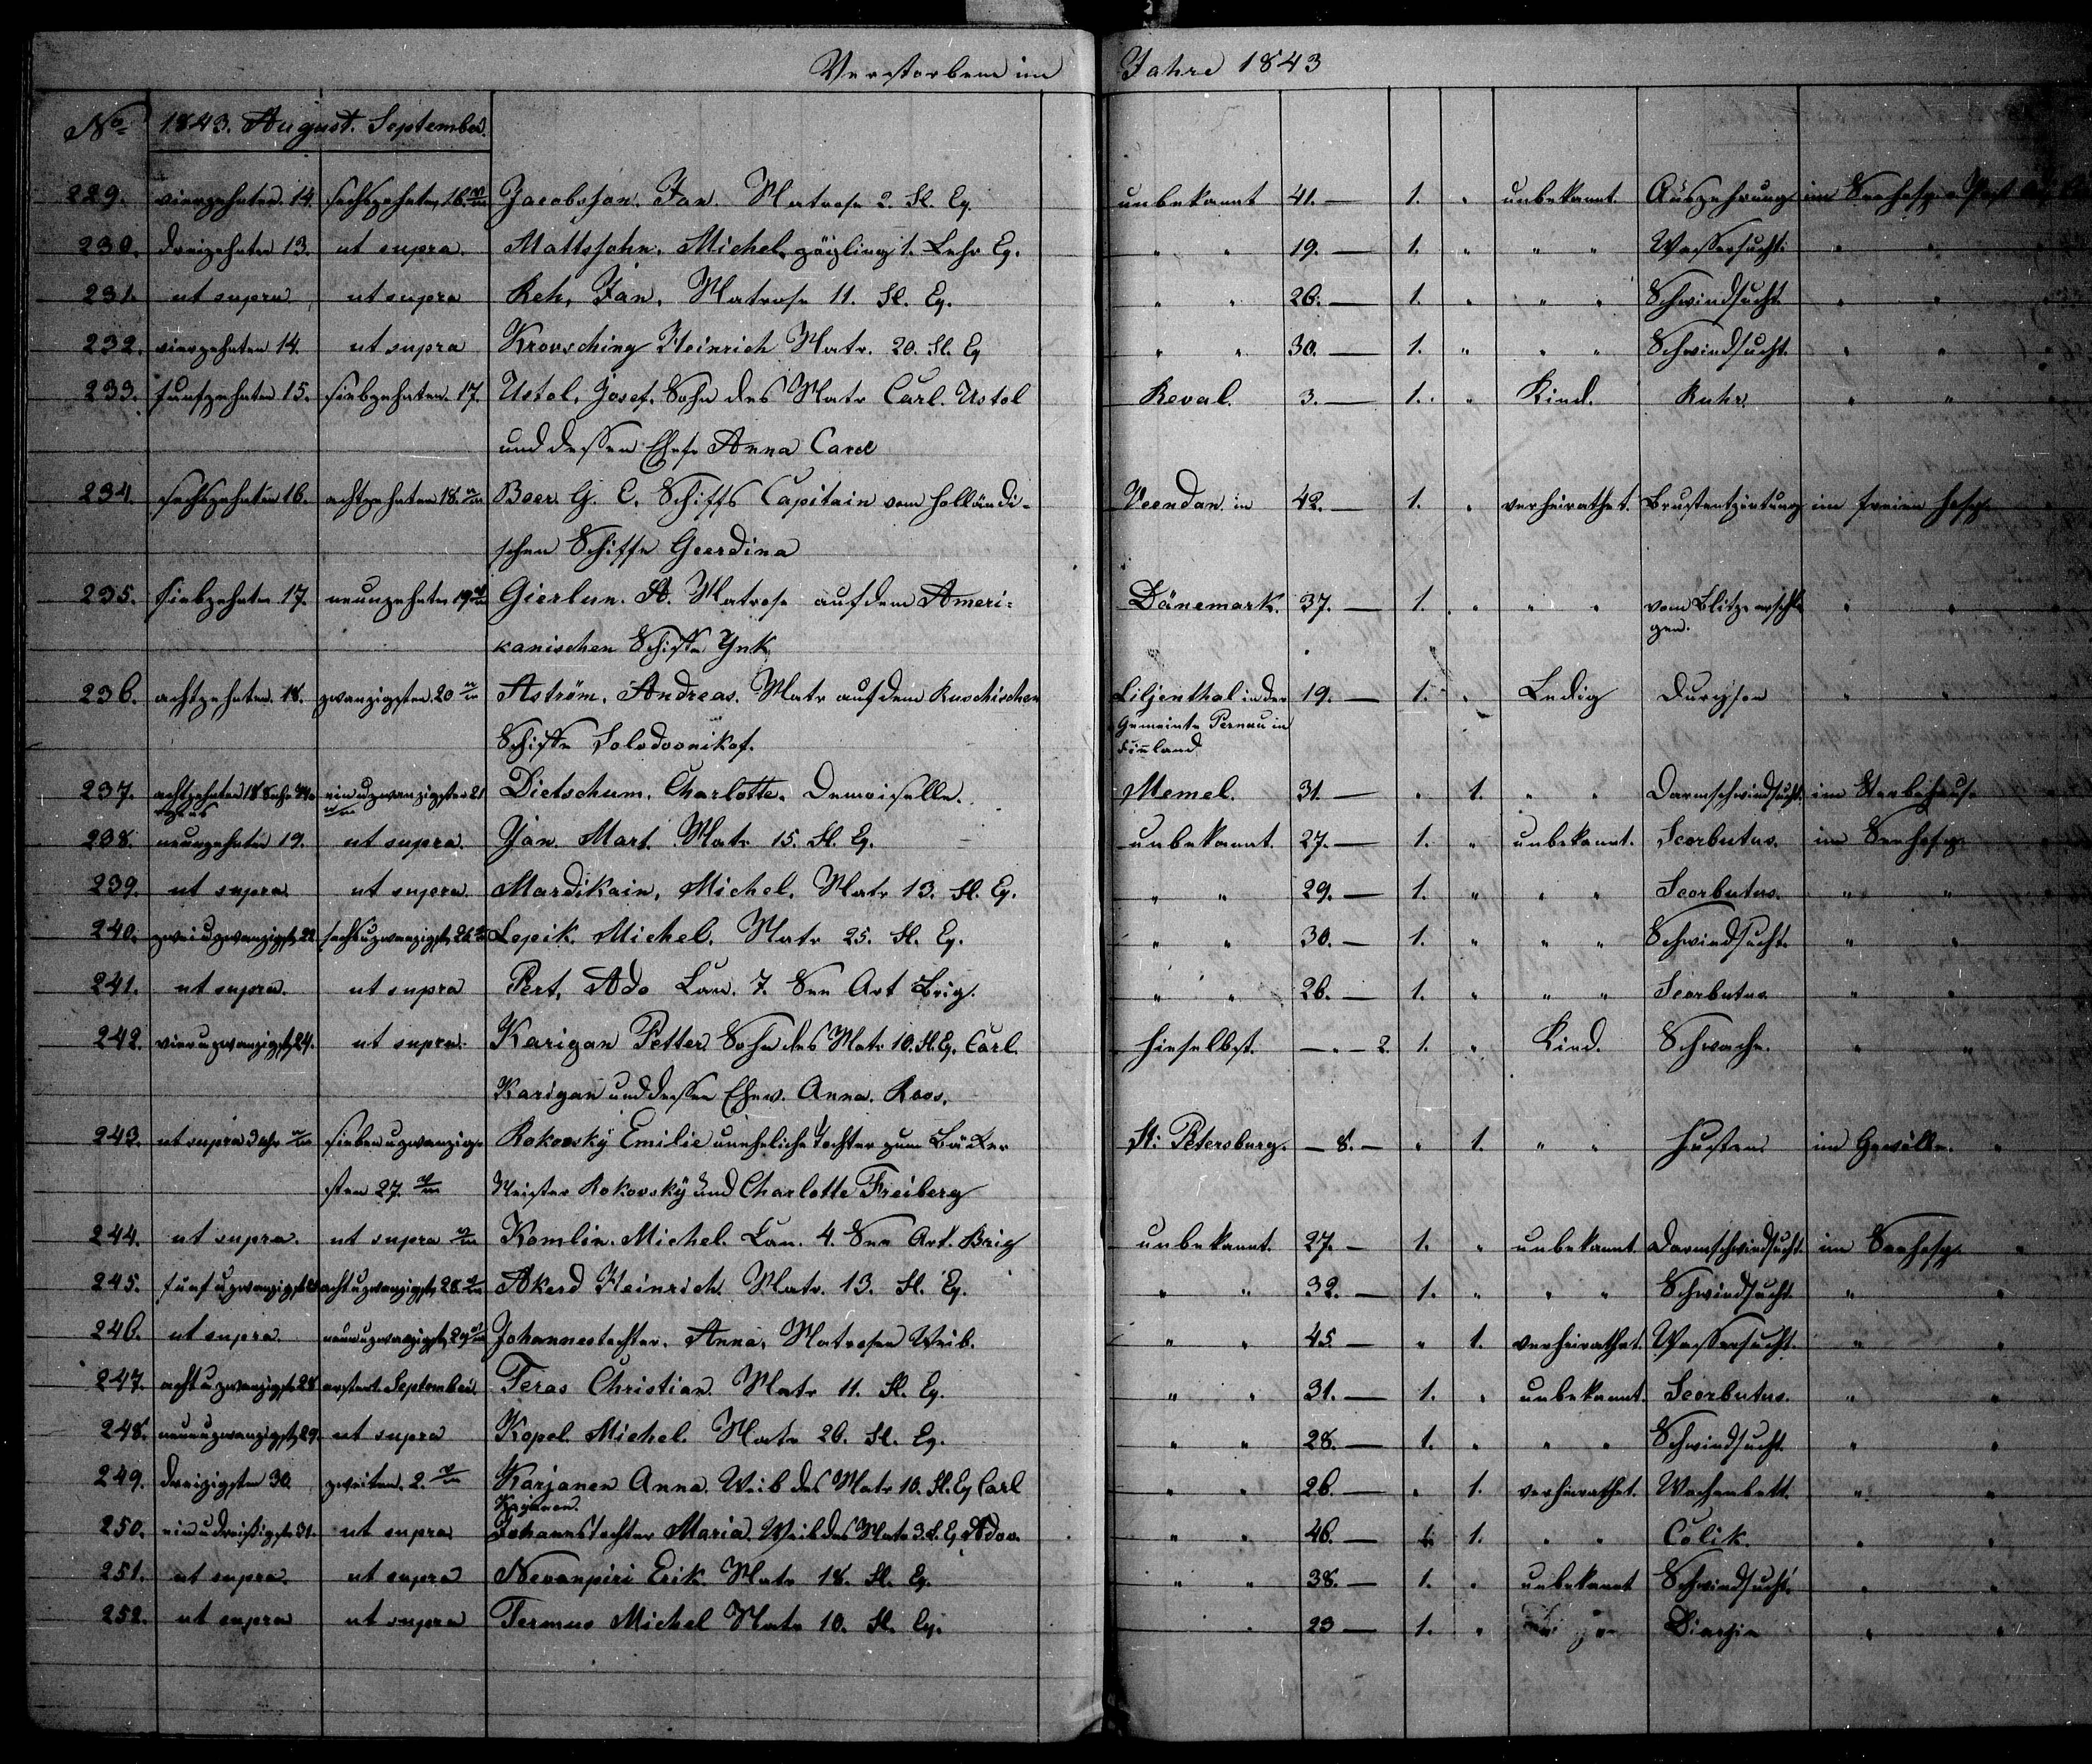 Verstorbene im Jahre 1843
No 1843. August. September.
229. vierzehnten 14. sechszehnten 16. Jacobsson. Jan. Matrose 2. Fl. Eq. unbekannt 41. — 1. " unbekannt. Auszehrung im Seehosp.
230. dreizehnten 13. ut supra. Mattssohn, Michel, zögling 1. Lehr Eq. " " 19. — 1. " " " Wassersucht. " "
231. ut supra ut supra Reh, Jan, Matrose 11. Fl. Eq. " " 26. — 1. " " " Schwindsucht " "
232. vierzehnten 14. ut supra Krousching Heinrich Matr. 20. Fl. Eq " " 30. — 1. " " " Schwindsucht. " "
233. funfzehnten 15. siebzehnten. 17. Ustol, Josef, Sohn des Matr Carl. Ustol Reval. 3. — 1. " Kind. Ruhr. " "
und dessen Ehefr Anna
234. sechszehnten 16. achtzehnten 18. Beer. G. C. Schiffs Capitain vom holländi- Veendan in 42. — 1. " verheirathet. Brustentzüntung im freien hosp.
schen Schiffe Geerdina
235. siebzehnten 17. neunzehnten 19 Gierlun. A. Matrose auf dem Ameri- Dänemark. 37. — 1. " " " vom Blitze erschla " "
kanischen Schiffe Ynk gen.
236. achtzehnten. 18. zwanzigsten. 20 Aström, Andreas. Matr auf dem Ruschischen Liljenthal in der 19. — 1. " Ledig " "
Schiffe Solodovnikof. Gemeinte Pernau in
Finland
237. achtzehnten 18 einuzwanzigsten 21 Dietschum, Charlotte, Demoiselle. Memel. 31. — " 1. " " Darmschwindsucht. im Sterbehause
238. neunzehnten 19. ut supra. Yän Mart. Matr 15. Fl. Eq. unbekannt. 27. — 1. " unbekannt. Scorbutus. im Seehosp.
239. ut supra ut supra Mardikain, Michel, Matr 13. Fl. Eq. " " 29. — 1. " " " Scorbutus. " "
240. zweiuzwanzigst 22 sechsuzwanzigst 26. Lepik. Michel. Matr 25. Fl. Eq. " " 30. — 1. " " " Schwindsucht. " "
241. ut supra. ut supra Pert, Ado Can. 7. See Art Brig. " " 26. — 1. " " " Scorbutus " "
242. vieruzwanzigst 24. ut supra. Karigan Petter. Sohn des Matr 10. Fl. Eq. Carl. hieselbst. — " — 2. 1. " Kind. Schwäche. " "
Karigan und dessen Ehew. Anna. Roos.
243. ut supra siebenuzwanzig- Rokovsky Emilie uneheliche Tochter zum Bäcker St. Petersburg. — 8. — " 1. " " Husten im Gewölbe. "
sten 27. Meister Rokovsky und Charlotte Freiberg
244. ut supra. ut supra Komlin. Michel. Can. 4. See Art. Brig unbekannt. 27. — 1. " unbekannt Darmschwindsucht im Seehosp. "
245. funfuzwanzigst achtuzwanzigst 28. Akerd Heinrich Matr. 13. Fl. Eq. " " 32. — 1. " " " Schwindsucht " "
246. ut supra. neunuzwanzigst 29 Johannestochter. Anna, Matrosen Weib. " " 45. — " 1. verheirathet. Wassersucht. " "
247. achtuzwanzigst 28 erstert September. Feras Christian. Matr 11. Fl. Eq. " " 31. — 1. " unbekannt. Scorbutus. " "
248. neunuzwanzigst 29. ut supra Kopel. Michel. Matr 20. Fl. Eq. " " 28. — 1. " " " Schwindsucht. " "
249. dreizigsten 30. zweiten. 2. Karjanen Anna. Weib des Matr 10. Fl. Eq Carl " " 26. — " 1. verheirathet. Wochenbett. " "
Kajanen.
250. einudreissigst 31. ut supra Johannstochter Maria. Weib des Matr 3. F. Eq " " 46. — " 1. " " Colik. " "
251. ut supra. ut supra Nevanpiri Erik. Matr 18. Fl. Eq. " " 38. — 1. " unbekannt Schwindsucht " "
252. ut supra ut supra Fermus Michel Matr 10. Fl. Eq. " 23 — 1. " " "